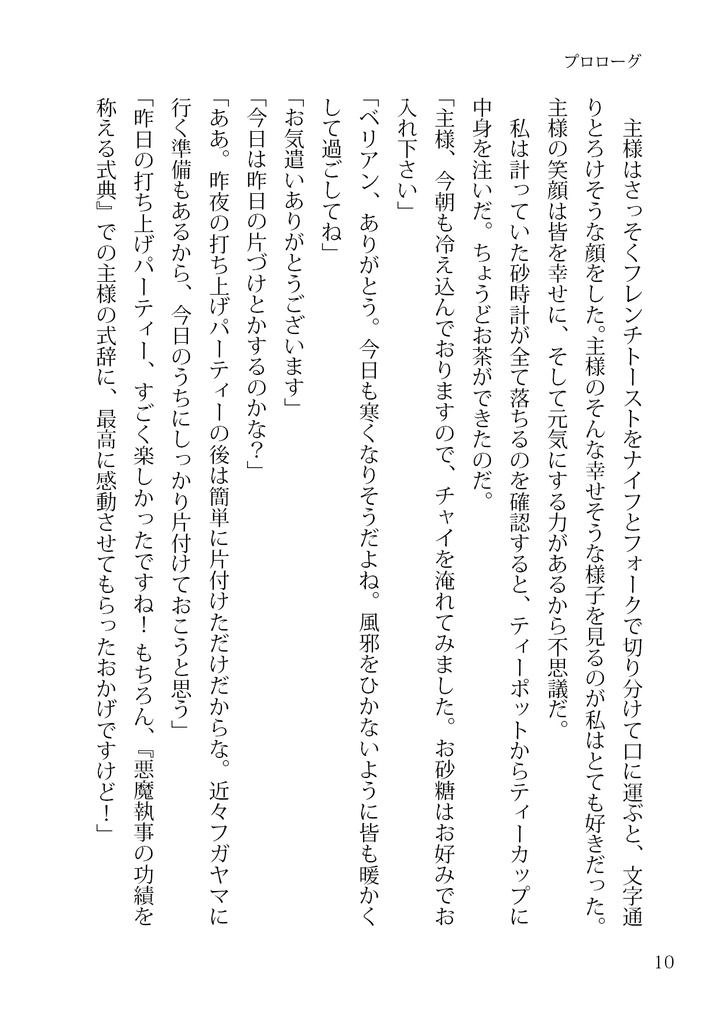 プロローグ
　主様はさっそくフレンチトーストをナイフとフォークで切り分けて口に運ぶと、文字通
りとろけそうな顔をした。主様のそんな幸せそうな様子を見るのが私はとても好きだった。
主様の笑顔は皆を幸せに、そして元気にする力があるから不思議だ。
　私は計っていた砂時計が全て落ちるのを確認すると、ティーポットからティーカップに
中身を注いだ。ちょうどお茶ができたのだ。
「主様、今朝も冷え込んでおりますので、チャイを淹れてみました。お砂糖はお好みでお
入れ下さい」
「ベリアン、ありがとう。今日も寒くなりそうだよね。風邪をひかないように皆も暖かく
して過ごしてね」
「お気遣いありがとうございます」
「今日は昨日の片づけとかするのかな？」
「ああ。昨夜の打ち上げパーティーの後は簡単に片付けただけだからな。近々フガヤマに
行く準備もあるから、今日のうちにしっかり片付けておこうと思う」
「昨日の打ち上げパーティー、すごく楽しかったですね！もちろん、『悪魔執事の功績を
称える式典』での主様の式辞に、最高に感動させてもらったおかげですけど！」
10